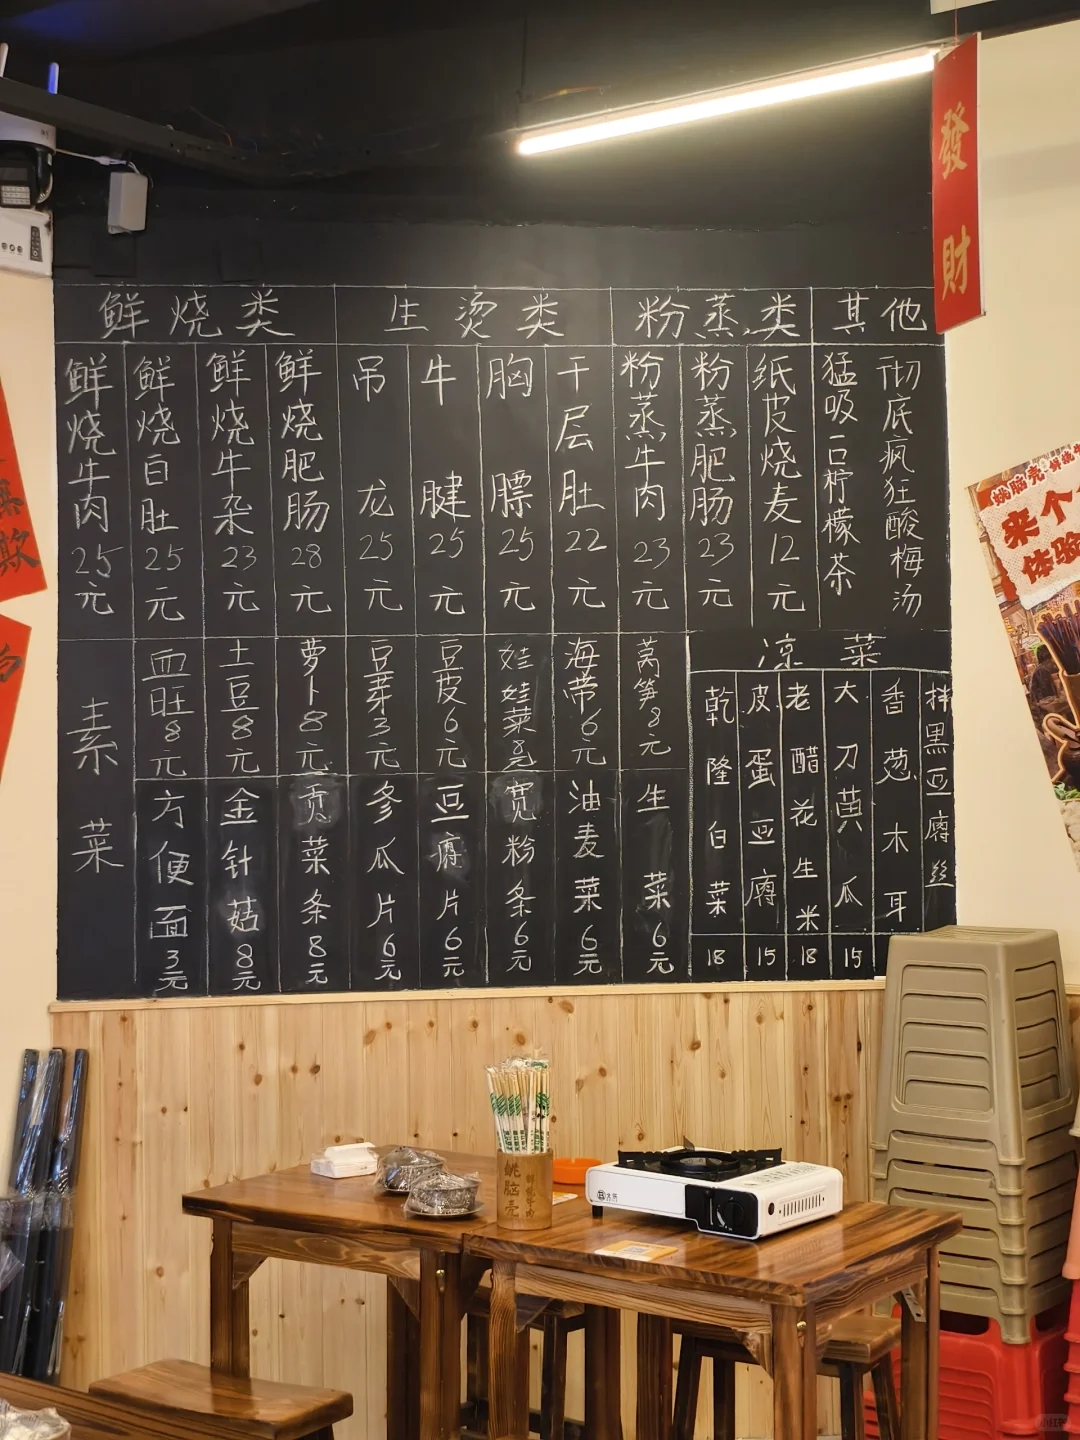 發財
鲜烧类
生烫类
粉蒸类
其他
鲜烧牛肉25元
鲜烧白肚25元
鲜烧牛杂23元
鲜烧肥肠28元
吊龙25元
牛腱25元
胸膘25元
千层肚22元
粉蒸牛肉23元
粉蒸肥肠23元
纸皮烧麦12元
猛吸一口柠檬茶
彻底疯狂酸梅汤
素菜
血旺8元
土豆8元
萝卜8元
豆芽3元
豆皮6元
娃娃菜8元
海带6元
莴笋8元
方便面3元
金针菇8元
贡菜条8元
冬瓜片6元
豆腐片6元
宽粉条6元
油麦菜6元
生菜6元
凉菜
乾隆白菜18
皮蛋豆腐15
老醋花生米18
大刀黄瓜15
香葱木耳
拌黑豆腐丝
姚脑壳
鲜烧牛肉
来个
体验
姚脑壳
鲜烧牛肉